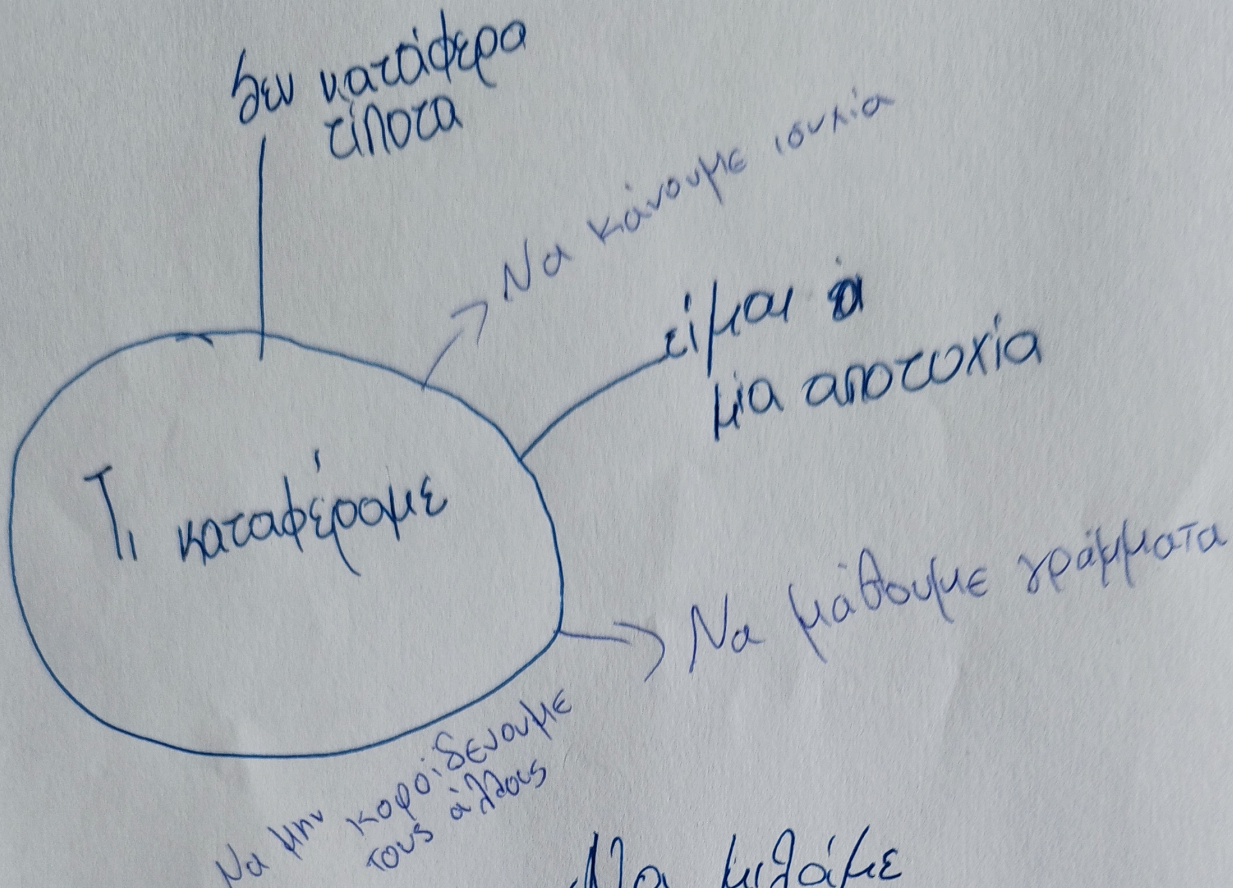 δεν κατάφερα
τίποτα
Να κάνουμε ισυχία
είμαι
μία αποτυχία
Τι καταφέραμε
Να μάθουμε γράμματα
Να μην κοροιδευουμε
τους άλλους
Να μιλάμε